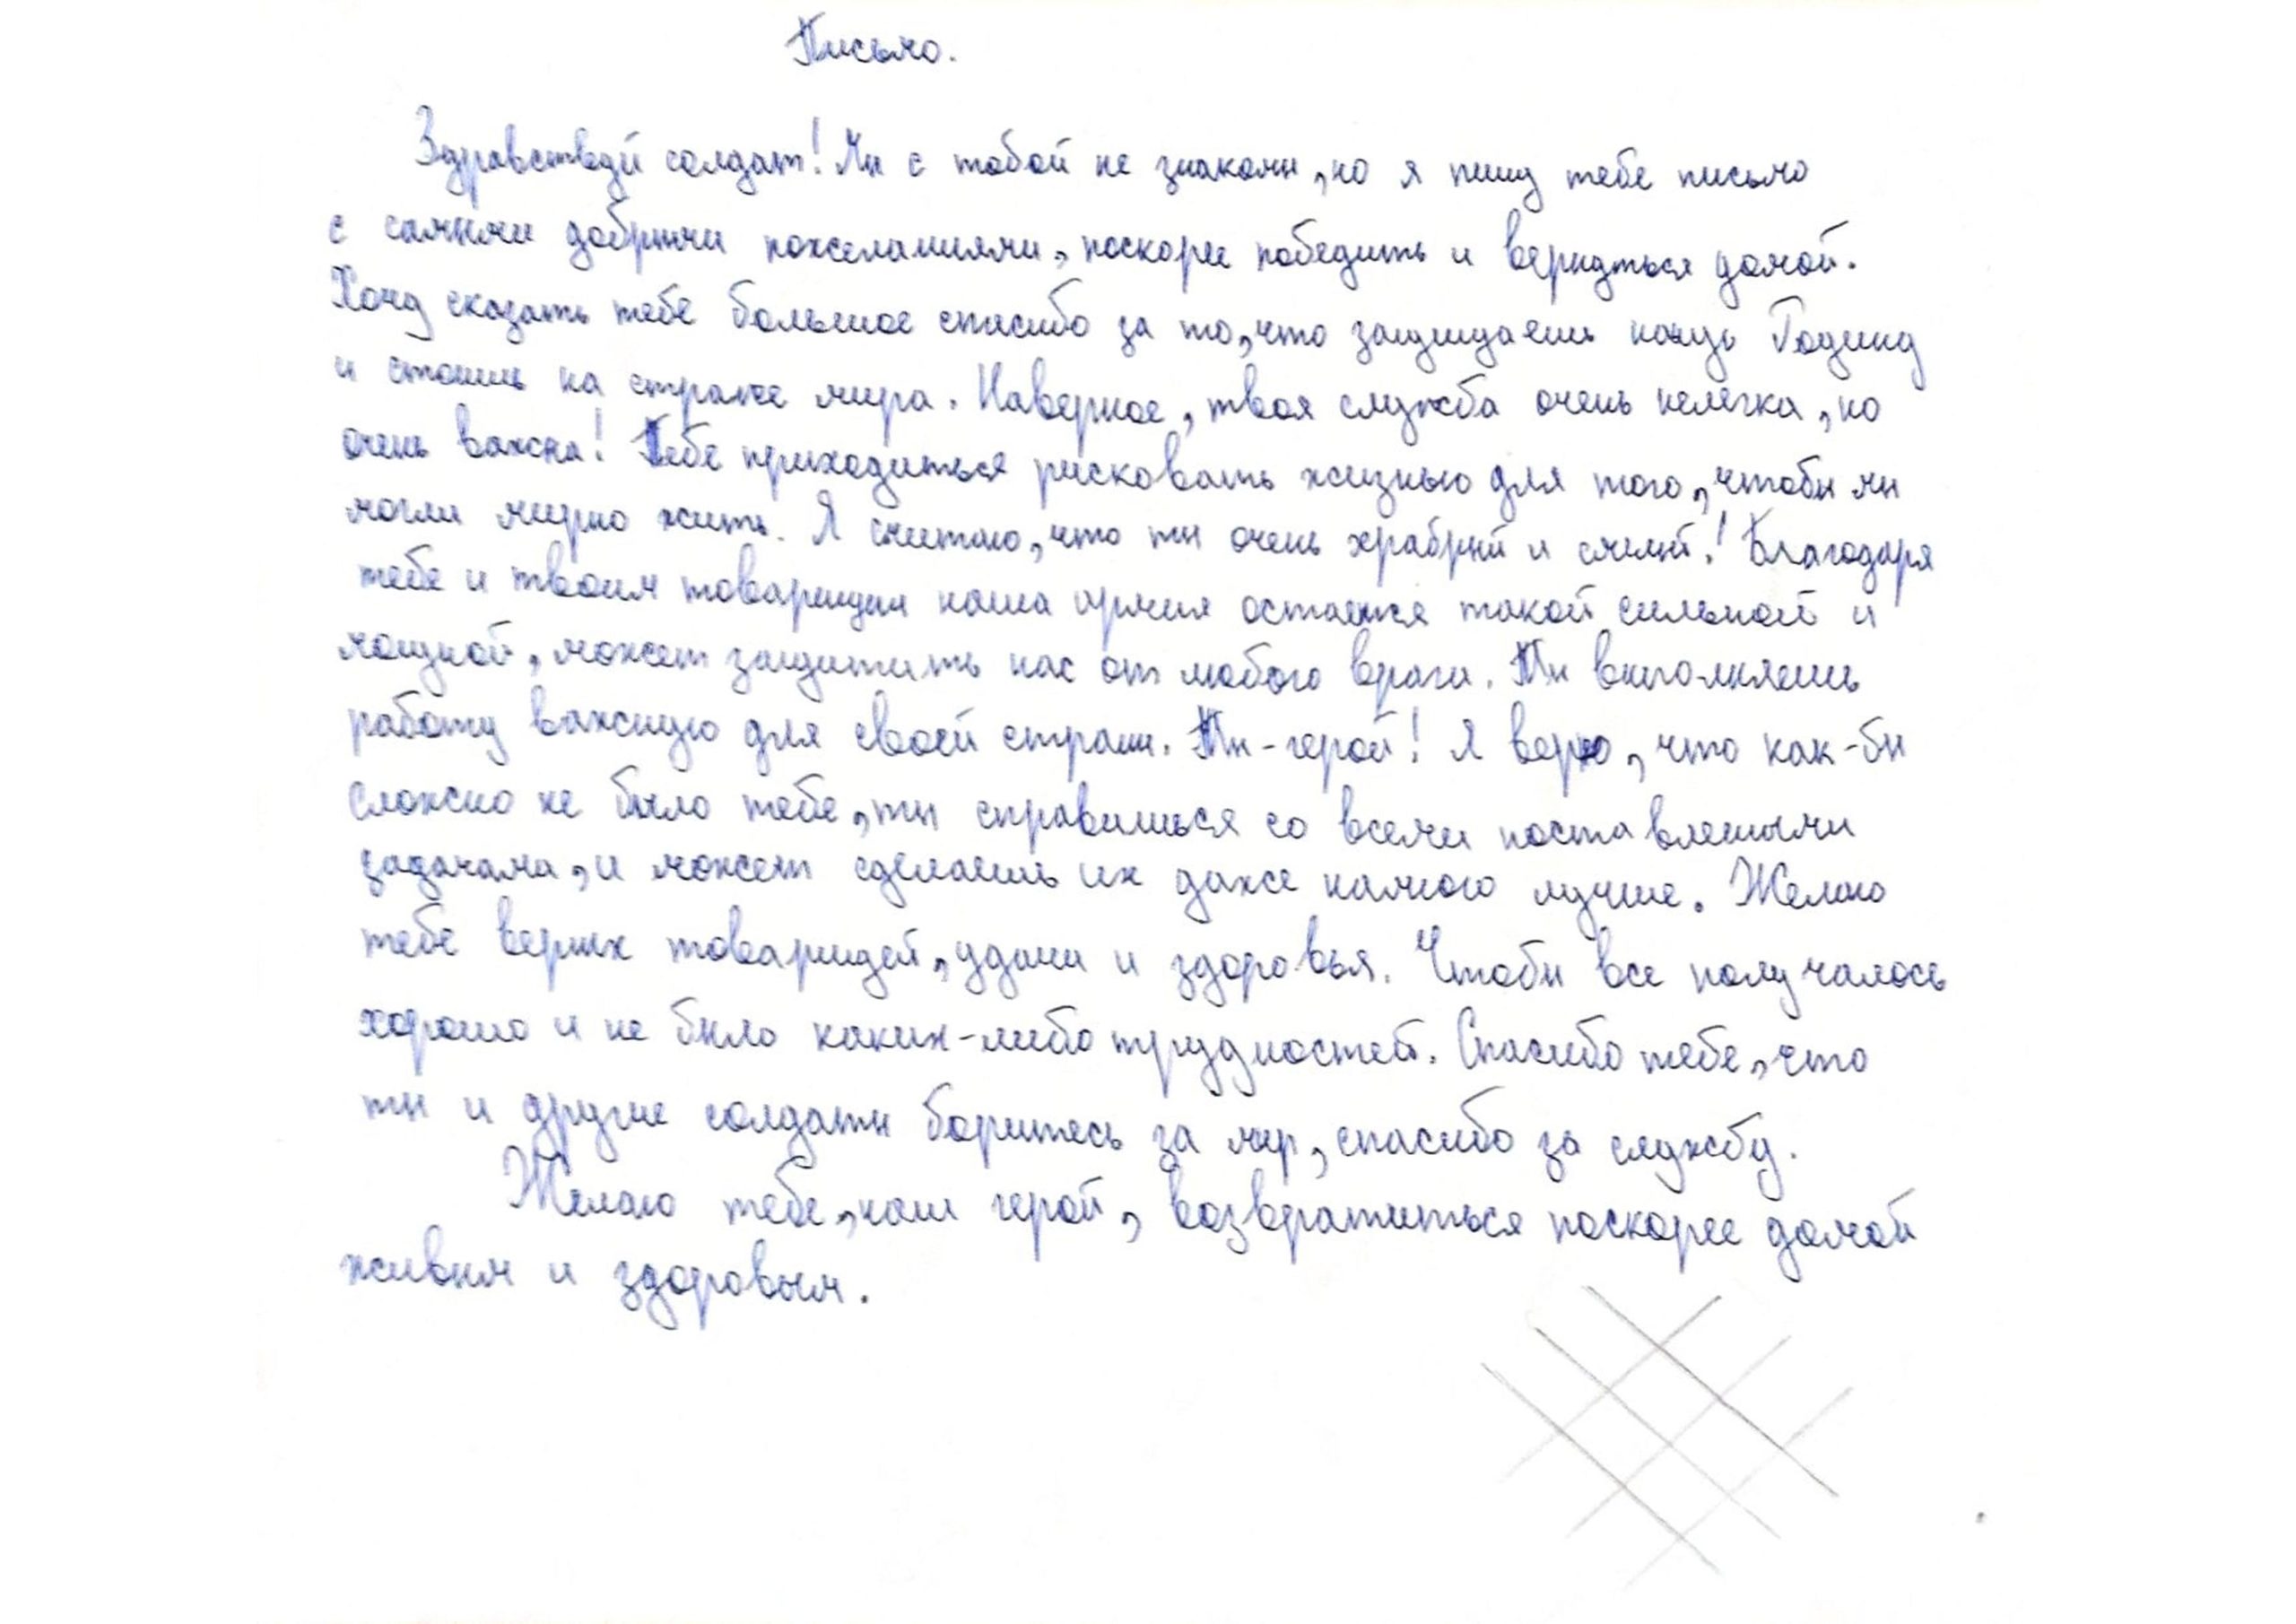 Письмо.
Здравствуй солдат! Мы с тобой не знакомы, но я пишу тебе письмо
с самыми добрыми пожеланиями, поскорее победить и вернуться домой.
Хочу сказать тебе большое спасибо за то, что защищаешь нашу Родину
и стоишь на страже мира. Наверное, твоя служба очень нелегка, но
очень важна! Тебе приходиться рисковать жизнью для того, чтобы мы
могли мирно жить. Я считаю, что ты очень храбрый и смелый! Благодаря
тебе и твоим товарищам наша армия остается такой сильной и
мощной, может защитить нас от любого врага. Ты выполняешь
работу важную для своей страны. Ты - герой! Я верю, что как-бы
сложно не было тебе, ты справишься со всеми поставлеными
задачама, и может сделаешь их даже намного лучше. Желаю
тебе верных товарищей, удачи и здоровья. Чтобы все получалось
хорошо и не было каких-либо трудностей. Спасибо тебе, что
ты и другие солдаты боритесь за мир, спасибо за службу.
Желаю тебе, наш герой, возвратиться поскорее домой
живым и здоровым.